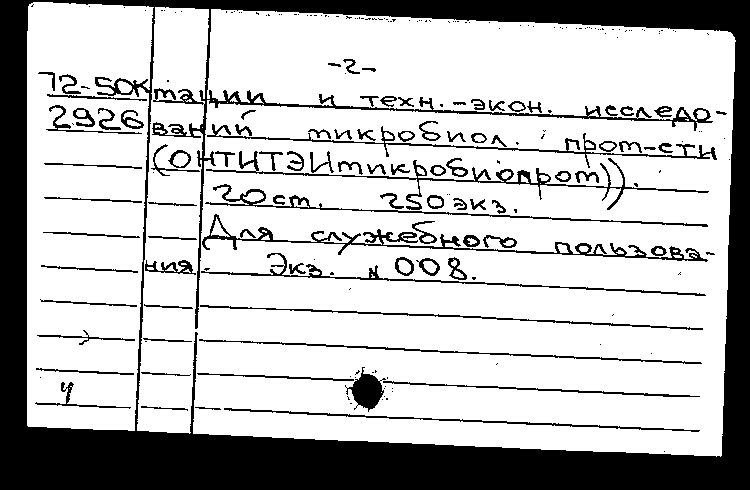 -2-
72-50К тации и техн.-экон. исследо-
2926 ваний микробиол. пром-сти
(ОНТИТЭИмикробиопром)).
20 ст. 250 экз.
Для служебного пользова-
ния. Экз. № 008.
4